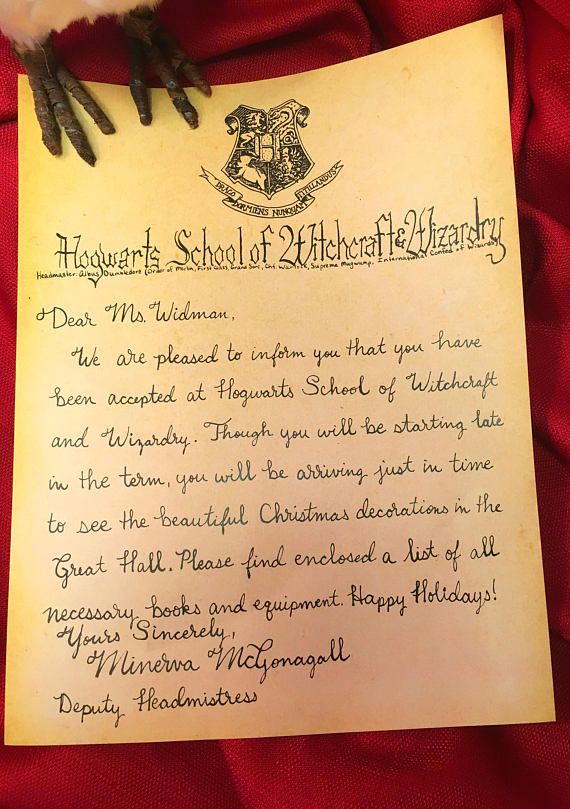 DRACO DORMIENS NUNQUAM TITILLANDUS
Hogwarts School of Witchcraft & Wizardry
Headmaster: Albus Dumbledore (Order of Merlin, First Class, Grand Sorc., Chf. Warlock, Supreme Mugwump, International Confed. of Wizards)
Dear Ms. Widman,
We are pleased to inform you that you have
been accepted at Hogwarts School of Witchcraft
and Wizardry. Though you will be starting late
in the term, you will be arriving just in time
to see the beautiful Christmas decorations in the
Great Hall. Please find enclosed a list of all
necessary books and equipment. Happy Holidays!
Yours Sincerely,
Minerva McGonagall
Deputy Headmistress